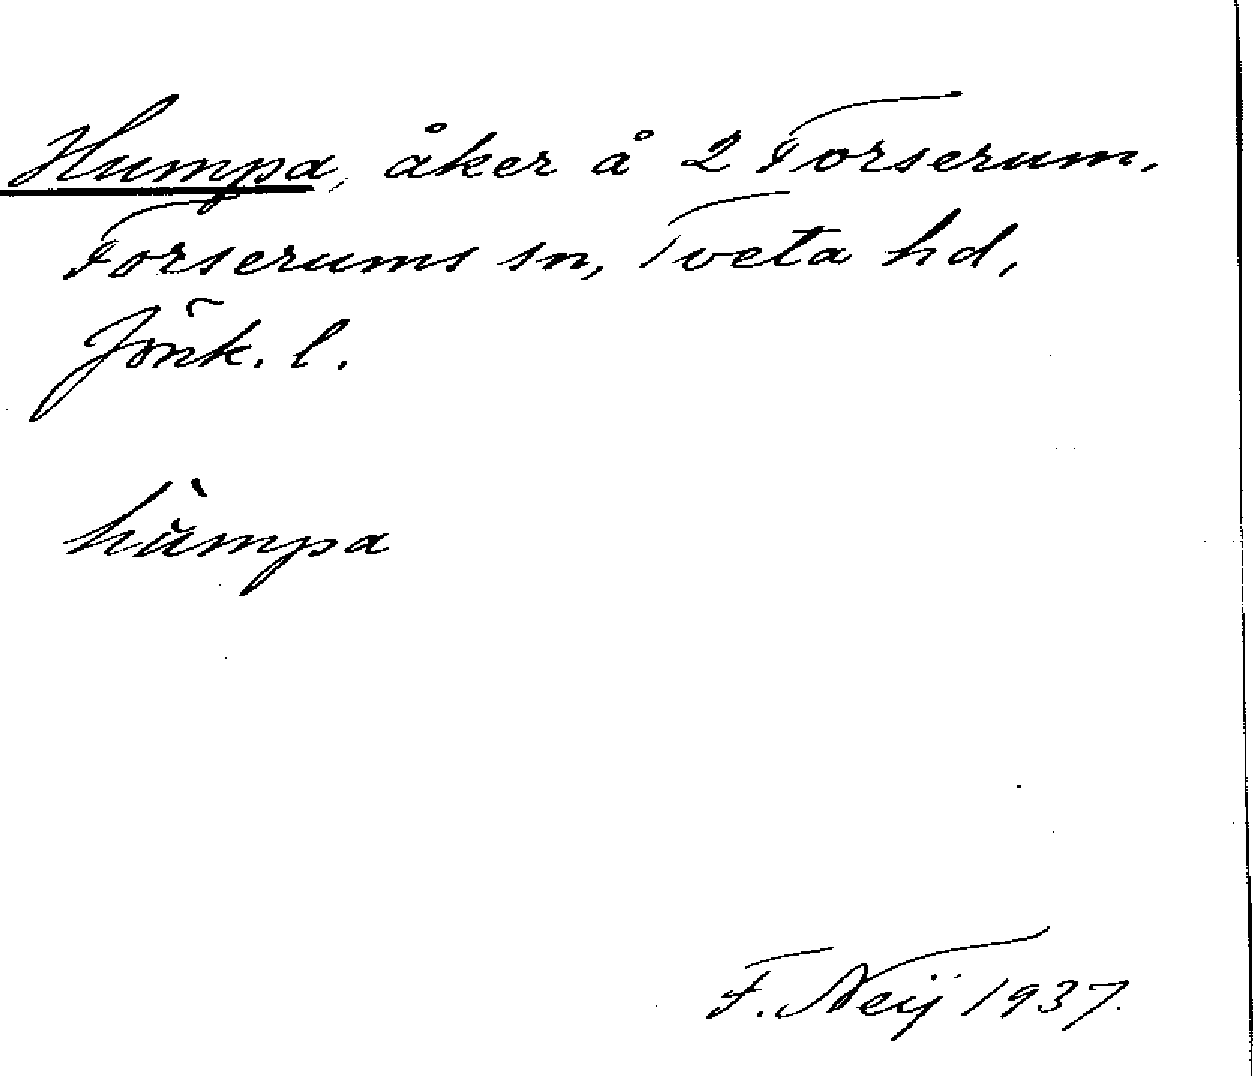 Humpa, åker å 2 Forserum.
Forserums sn, Tveta hd,
Jönk. l.
hùmpa
F. Neij 1937.